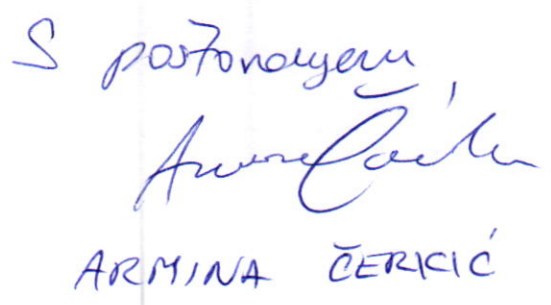 S poštovanjem
Armina Čerkić
ARMINA ČERKIĆ